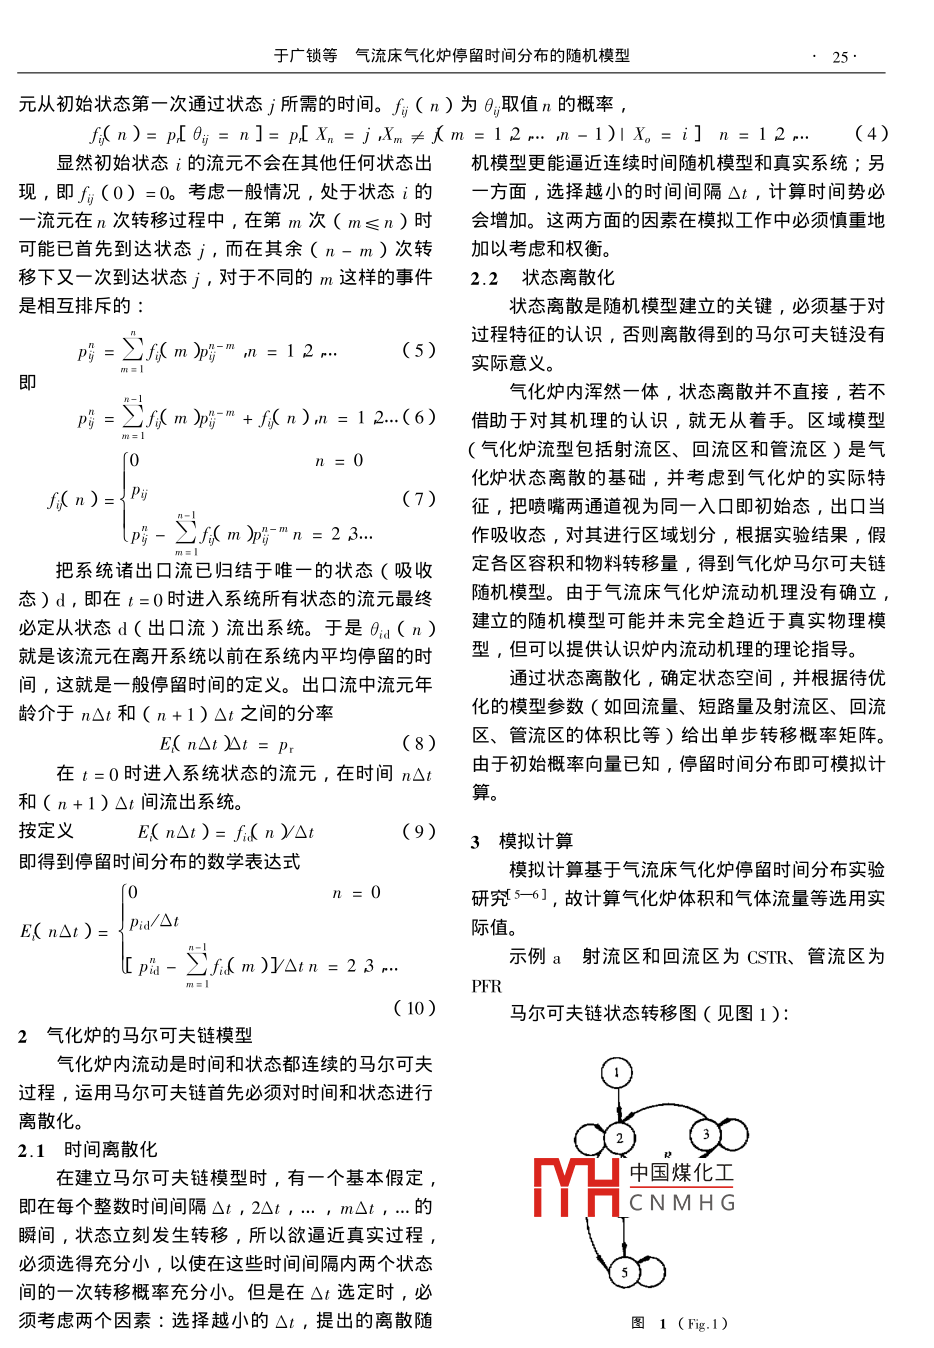 于广锁等 气流床气化炉停留时间分布的随机模型 · 25 ·
元从初始状态第一次通过状态 j 所需的时间。f_ij（n）为 θ_ij 取值 n 的概率，
f_ij(n) = p_r[θ_ij = n] = p_r[X_n = j, X_m ≠ j(m = 1,2,…,n−1) | X_o = i] n = 1,2,… （4）
显然初始状态 i 的流元不会在其他任何状态出
现，即 f_ij（0）=0。考虑一般情况，处于状态 i 的
一流元在 n 次转移过程中，在第 m 次（m≤n）时
可能已首先到达状态 j，而在其余（n−m）次转
移下又一次到达状态 j，对于不同的 m 这样的事件
是相互排斥的：
p_ij^n = ∑_{m=1}^{n} f_ij(m)p_ij^{n−m}, n = 1,2,… （5）
即
p_ij^n = ∑_{m=1}^{n−1} f_ij(m)p_ij^{n−m} + f_ij(n), n = 1,2…（6）
0 n = 0
f_ij(n) = { p_ij （7）
p_ij^n − ∑_{m=1}^{n−1} f_ij(m)p_ij^{n−m} n = 2,3…
把系统诸出口流已归结于唯一的状态（吸收
态）d，即在 t=0 时进入系统所有状态的流元最终
必定从状态 d（出口流）流出系统。于是 θ_id（n）
就是该流元在离开系统以前在系统内平均停留的时
间，这就是一般停留时间的定义。出口流中流元年
龄介于 nΔt 和（n+1）Δt 之间的分率
E_i(nΔt)Δt = p_r （8）
在 t=0 时进入系统状态的流元，在时间 nΔt
和（n+1）Δt 间流出系统。
按定义 E_i(nΔt) = f_id(n)/Δt （9）
即得到停留时间分布的数学表达式
0 n = 0
E_i(nΔt) = { p_id/Δt
[p_id^n − ∑_{m=1}^{n−1} f_id(m)]/Δt n = 2,3,…
（10）
2 气化炉的马尔可夫链模型
气化炉内流动是时间和状态都连续的马尔可夫
过程，运用马尔可夫链首先必须对时间和状态进行
离散化。
2.1 时间离散化
在建立马尔可夫链模型时，有一个基本假定，
即在每个整数时间间隔 Δt，2Δt，…，mΔt，…的
瞬间，状态立刻发生转移，所以欲逼近真实过程，
必须选得充分小，以使在这些时间间隔内两个状态
间的一次转移概率充分小。但是在 Δt 选定时，必
须考虑两个因素：选择越小的 Δt，提出的离散随
机模型更能逼近连续时间随机模型和真实系统；另
一方面，选择越小的时间间隔 Δt，计算时间势必
会增加。这两方面的因素在模拟工作中必须慎重地
加以考虑和权衡。
2.2 状态离散化
状态离散是随机模型建立的关键，必须基于对
过程特征的认识，否则离散得到的马尔可夫链没有
实际意义。
气化炉内浑然一体，状态离散并不直接，若不
借助于对其机理的认识，就无从着手。区域模型
（气化炉流型包括射流区、回流区和管流区）是气
化炉状态离散的基础，并考虑到气化炉的实际特
征，把喷嘴两通道视为同一入口即初始态，出口当
作吸收态，对其进行区域划分，根据实验结果，假
定各区容积和物料转移量，得到气化炉马尔可夫链
随机模型。由于气流床气化炉流动机理没有确立，
建立的随机模型可能并未完全趋近于真实物理模
型，但可以提供认识炉内流动机理的理论指导。
通过状态离散化，确定状态空间，并根据待优
化的模型参数（如回流量、短路量及射流区、回流
区、管流区的体积比等）给出单步转移概率矩阵。
由于初始概率向量已知，停留时间分布即可模拟计
算。
3 模拟计算
模拟计算基于气流床气化炉停留时间分布实验
研究[5—6]，故计算气化炉体积和气体流量等选用实
际值。
示例 a 射流区和回流区为 CSTR、管流区为
PFR
马尔可夫链状态转移图（见图 1）：
1
2 3
中国煤化工
CNMHG
5
图 1（Fig.1）